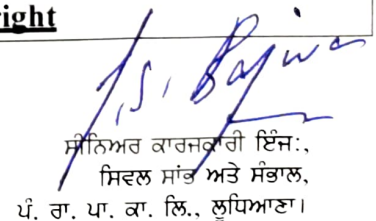 right
J.S. Bajwa
ਸੀਨਿਅਰ ਕਾਰਜਕਾਰੀ ਇੰਜ:,
ਸਿਵਲ ਸਾਂਭ ਅਤੇ ਸੰਭਾਲ,
ਪੰ. ਰਾ. ਪਾ. ਕਾ. ਲਿ., ਲੁਧਿਆਣਾ।